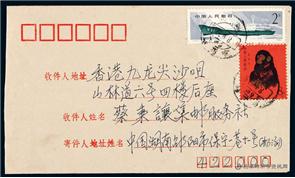 中国人民邮政 2
收件人地址 香港九龙尖沙咀
山林道六号四楼后座
收件人姓名 蔡 東讓集邮服务社
寄件人地址姓名 中国湖南邵阳市保宁
422000